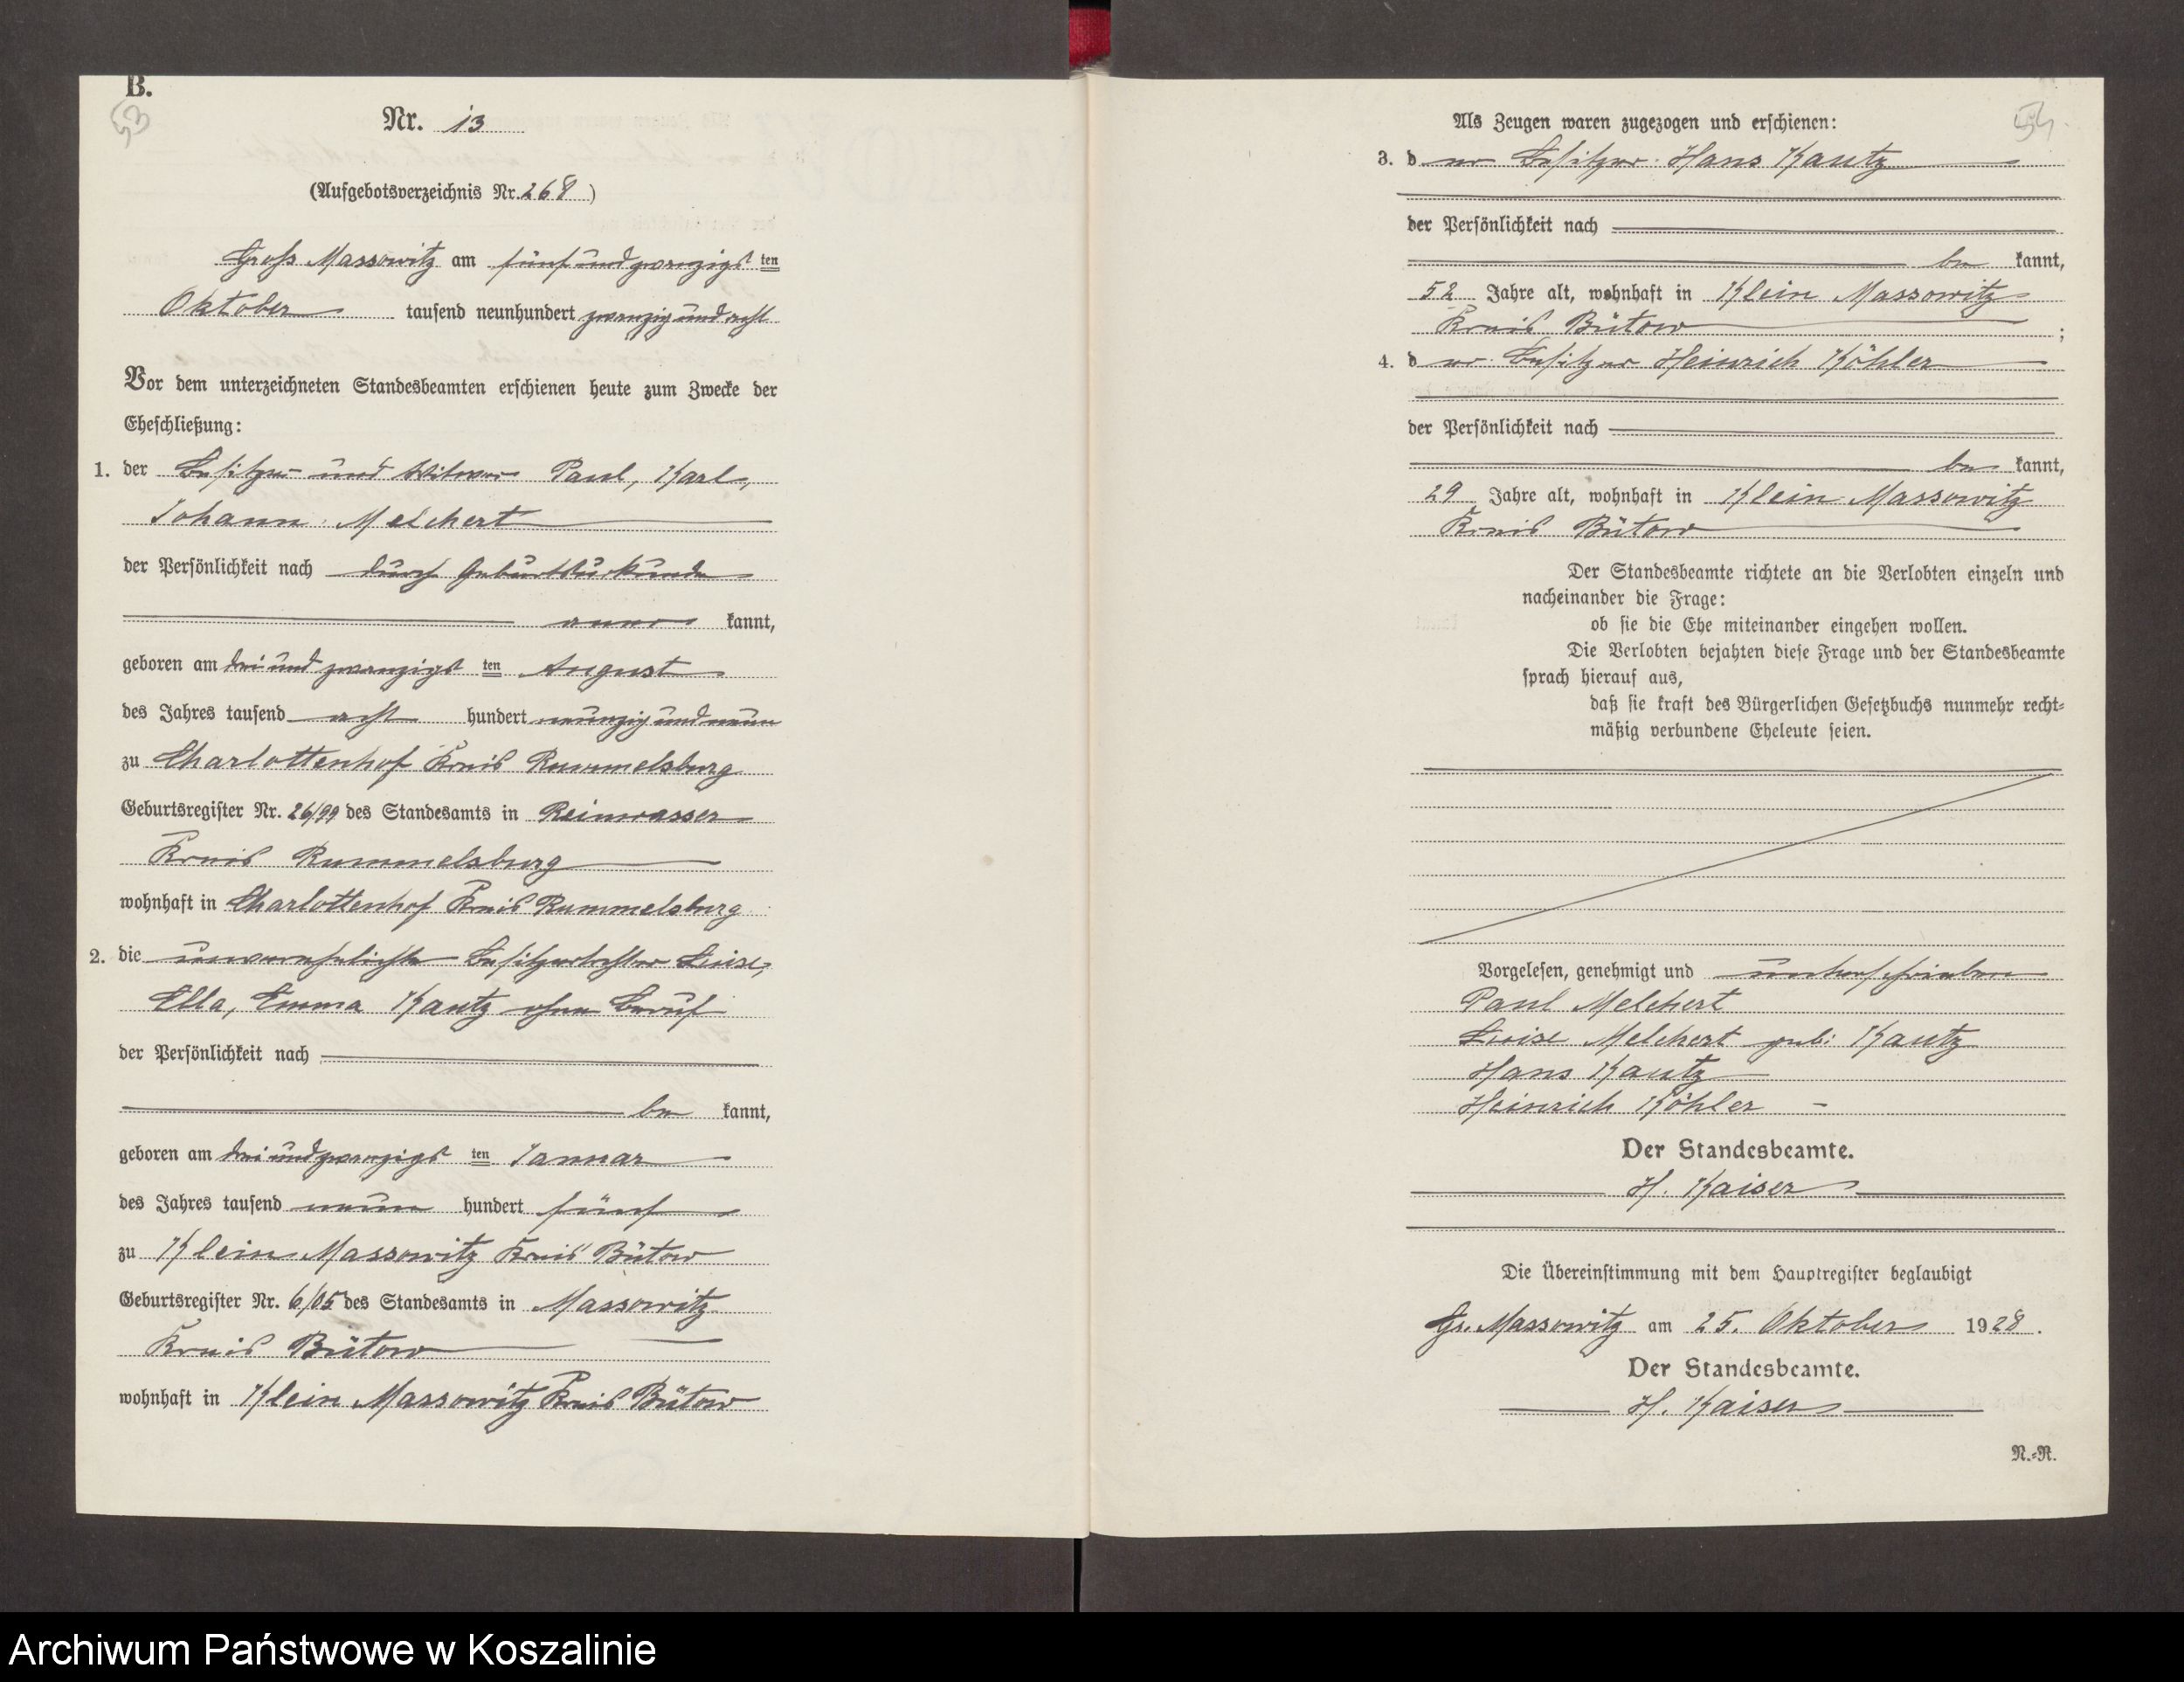 B.
53
Nr. 13
(Aufgebotsverzeichnis Nr. 268)
Groß Massowitz am fünfundzwanzigsten
Oktober tausend neunhundert zwanzig und acht
Vor dem unterzeichneten Standesbeamten erschienen heute zum Zwecke der
Eheschließung:
1. der Besitzer und Witwer Paul, Karl,
Johann Melchert
der Persönlichkeit nach durch Geburtsurkunde
anerkannt,
geboren am dreiundzwanzigsten August
des Jahres tausend acht hundert neunzig und neun
zu Charlottenhof Kreis Rummelsburg
Geburtsregister Nr. 26/99 des Standesamts in Reinwasser
Kreis Rummelsburg
wohnhaft in Charlottenhof Kreis Rummelsburg
2. die unverehelichte Besitzertochter Luise,
Ella, Emma Kautz ohne Beruf
der Persönlichkeit nach
bekannt,
geboren am dreiundzwanzigsten Januar
des Jahres tausend neun hundert fünf
zu Klein Massowitz Kreis Bütow
Geburtsregister Nr. 6/05 des Standesamts in Massowitz
Kreis Bütow
wohnhaft in Klein Massowitz Kreis Bütow
54
Als Zeugen waren zugezogen und erschienen:
3. der Besitzer Hans Kautz
der Persönlichkeit nach
bekannt,
52 Jahre alt, wohnhaft in Klein Massowitz
Kreis Bütow;
4. der Besitzer Heinrich Köhler
der Persönlichkeit nach
bekannt,
29 Jahre alt, wohnhaft in Klein Massowitz
Kreis Bütow
Der Standesbeamte richtete an die Verlobten einzeln und
nacheinander die Frage:
ob sie die Ehe miteinander eingehen wollen.
Die Verlobten bejahten diese Frage und der Standesbeamte
sprach hierauf aus,
daß sie kraft des Bürgerlichen Gesetzbuchs nunmehr recht-
mäßig verbundene Eheleute seien.
Vorgelesen, genehmigt und unterschrieben
Paul Melchert
Luise Melchert geb: Kautz
Hans Kautz
Heinrich Köhler
Der Standesbeamte.
H. Kaiser
Die Übereinstimmung mit dem Hauptregister beglaubigt
Gr. Massowitz am 25. Oktober 1928.
Der Standesbeamte.
H. Kaiser
N.-R.
Archiwum Państwowe w Koszalinie